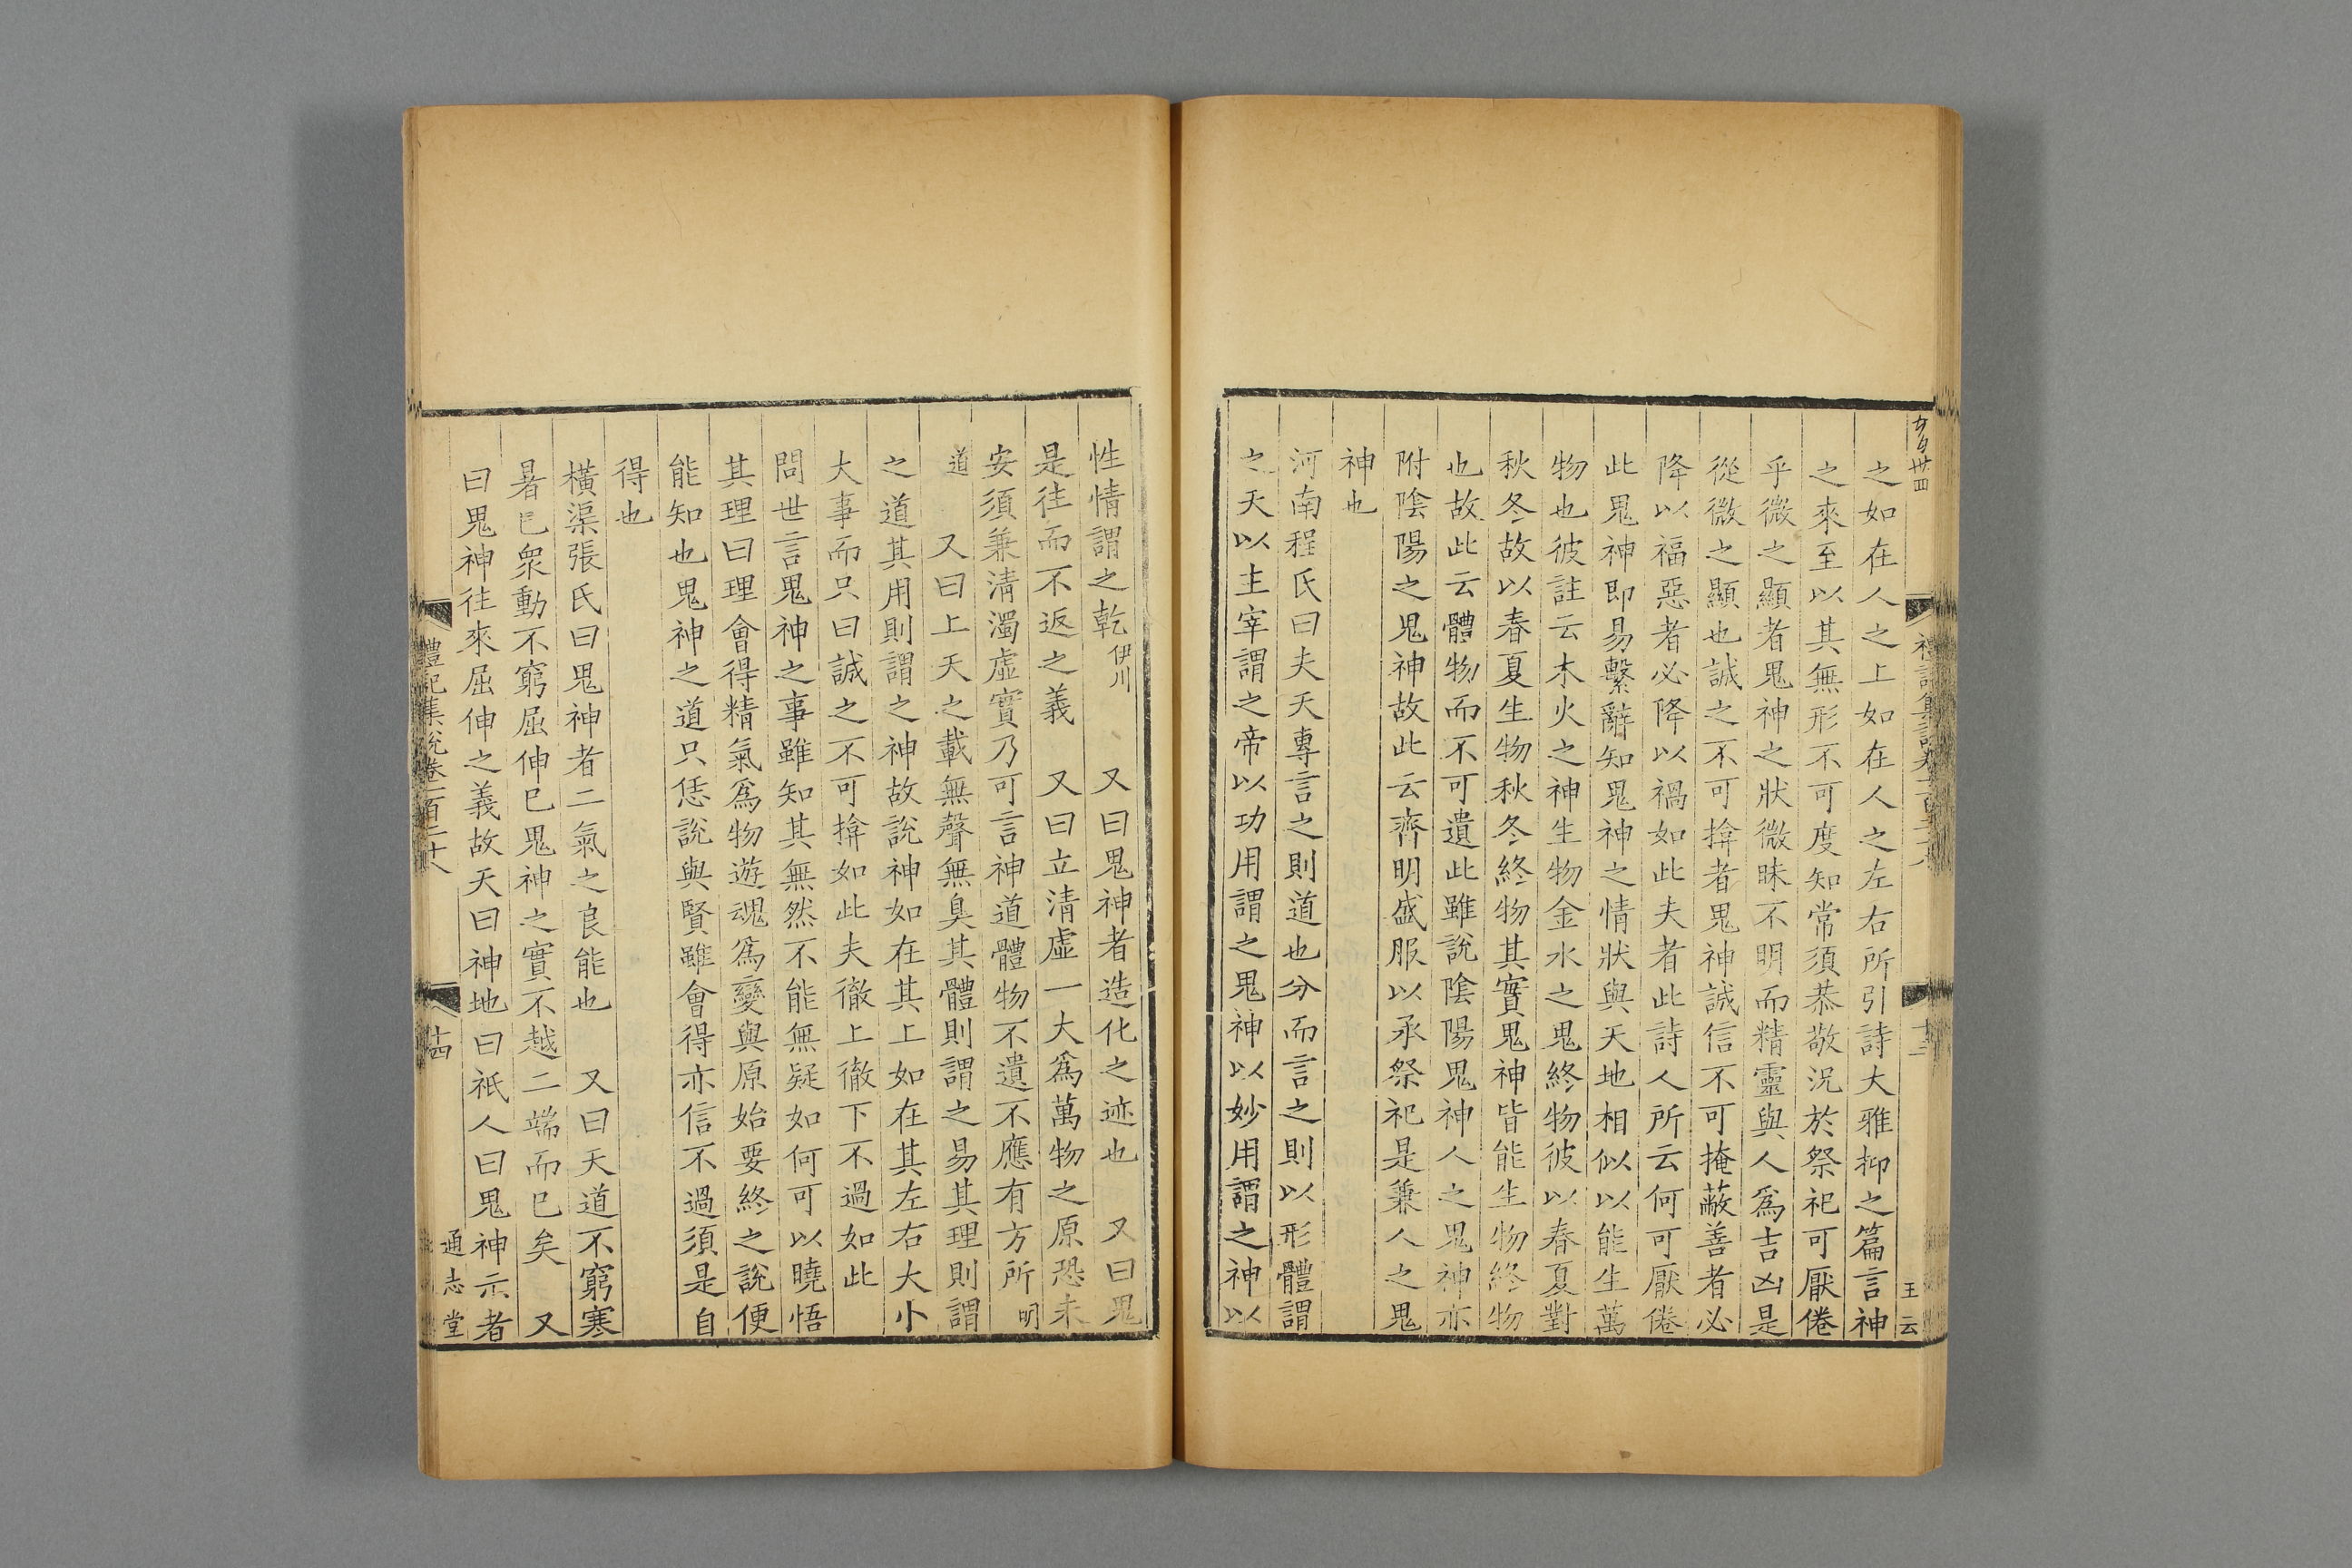 之如在人之上如在人之左右所引詩大雅抑之篇言神
之來至以其無形不可度知常須恭敬況於祭祀可厭倦
乎微之顯者鬼神之狀微昧不明而精靈與人爲吉凶是
從微之顯也誠之不可揜者鬼神誠信不可掩蔽善者必
降以福惡者必降以禍如此夫者此詩人所云何可厭倦
此鬼神即易繫辭知鬼神之情狀與天地相似以能生萬
物也彼註云木火之神生物金水之鬼終物彼以春夏對
秋冬故以春夏生物秋冬終物其實鬼神皆能生物終物
也故此云體物而不可遺此雖說陰陽鬼神人之鬼神亦
附陰陽之鬼神故此云齊明盛服以承祭祀是兼人之鬼
神也
河南程氏曰夫天專言之則道也分而言之則以形體謂
之天以主宰謂之帝以功用謂之鬼神以妙用謂之神以
王云
性情謂之乾伊川　又曰鬼神者造化之迹也　又曰鬼
是往而不返之義　又曰立清虛一大爲萬物之原恐未
安須兼清濁虛實乃可言神道體物不遺不應有方所明
道　又曰上天之載無聲無臭其體則謂之易其理則謂
之道其用則謂之神故說神如在其上如在其左右大小
大事而只曰誠之不可揜如此夫徹上徹下不過如此
問世言鬼神之事雖知其無然不能無疑如何可以曉悟
其理曰理會得精氣爲物遊魂爲變與原始要終之說便
能知也鬼神之道只恁說與賢雖會得亦信不過須是自
得也
橫渠張氏曰鬼神者二氣之良能也　又曰天道不窮寒
暑已衆動不窮屈伸已鬼神之實不越二端而已矣　又
曰鬼神往來屈伸之義故天曰神地曰祇人曰鬼神示者
禮記集說卷一百二十八
十四
通志堂